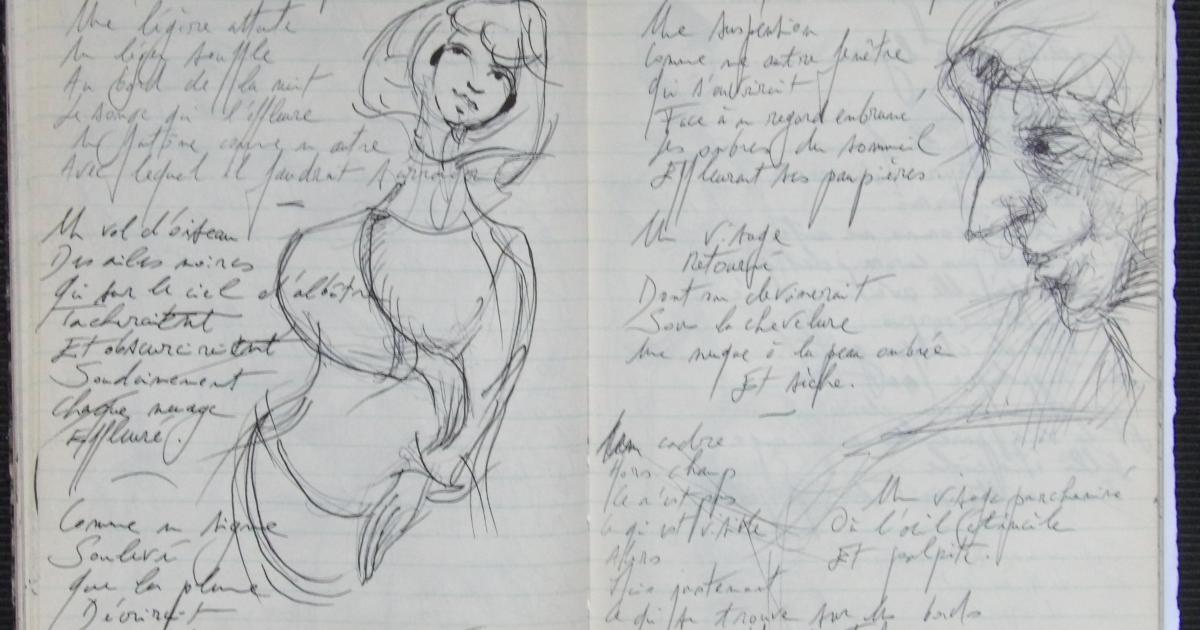 Une légère attente
Un léger souffle
Au bord de la nuit
Le songe qui l'effleure
Un fantôme comme un autre
Avec lequel il faudrait
Un vol d'oiseau
Des ailes noires
Qui sur le ciel d'albâtre
Tacheraient
Et obscurciraient
Soudainement
Chaque nuage
Effleuré.
Comme un signe
Soulevé
Que la plume
Décrirait
Une suspension
Comme une autre fenêtre
Qui s'ouvrirait
Face à un regard embrumé
Les ombres du sommeil
Effleurant ses paupières
Un visage
Retourné
Dont on devinerait
Sous la chevelure
Une nuque à la peau ombrée
Et sèche.
cadre
Hors champ
Ce n'est pas
Ce qui est visible
Alors
Mais justement
Ce qui se trouve sur les bords
Un visage parcheminé
Où l'œil étincelle
Et palpite.